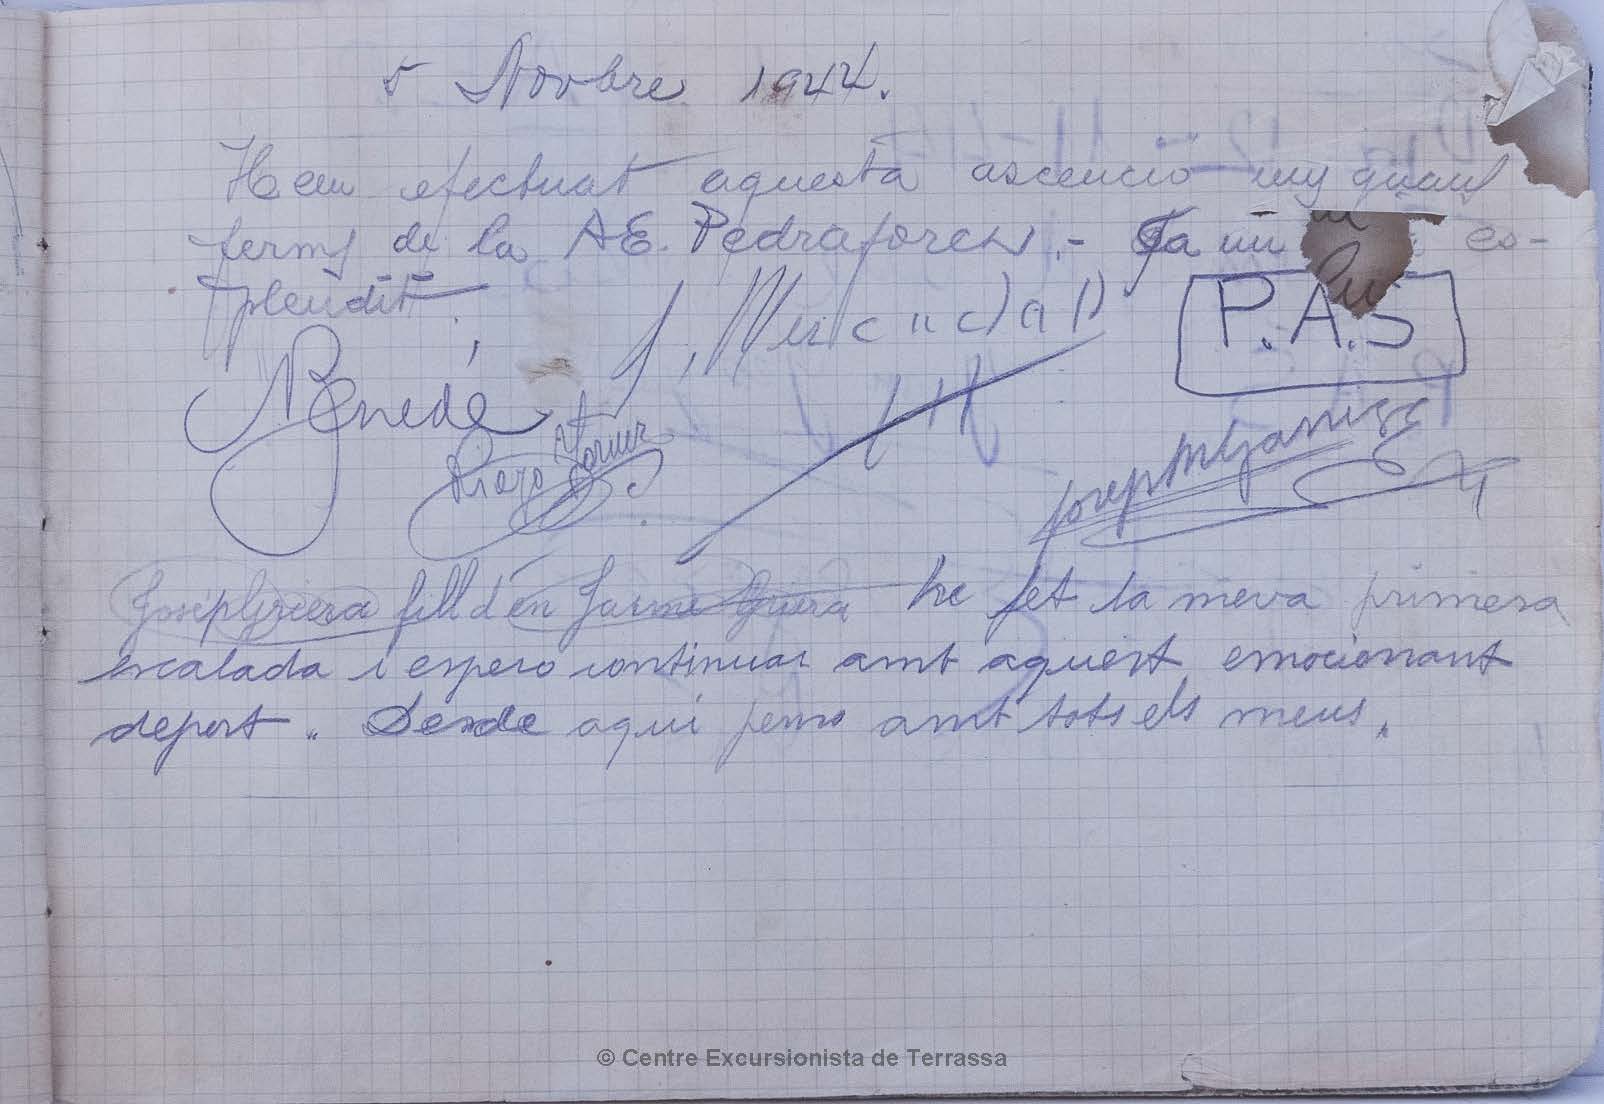 5 Novbre 1944.
Hem efectuat aquesta ascenció uny quans
ferms de la A.E. Pedraforca.- Fa un es-
plendit.
P.A.S
Benedé
Josep Guiera fill d'en Jaume Guiera he fet la meva primera
escalada i espero continuar amb aquest emocionant
deport. Desde aqui penso amb tots els meus.
© Centre Excursionista de Terrassa